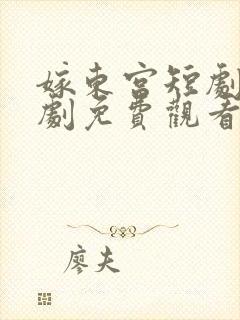 嫁東宮短劇
劇免費觀看
廖夫